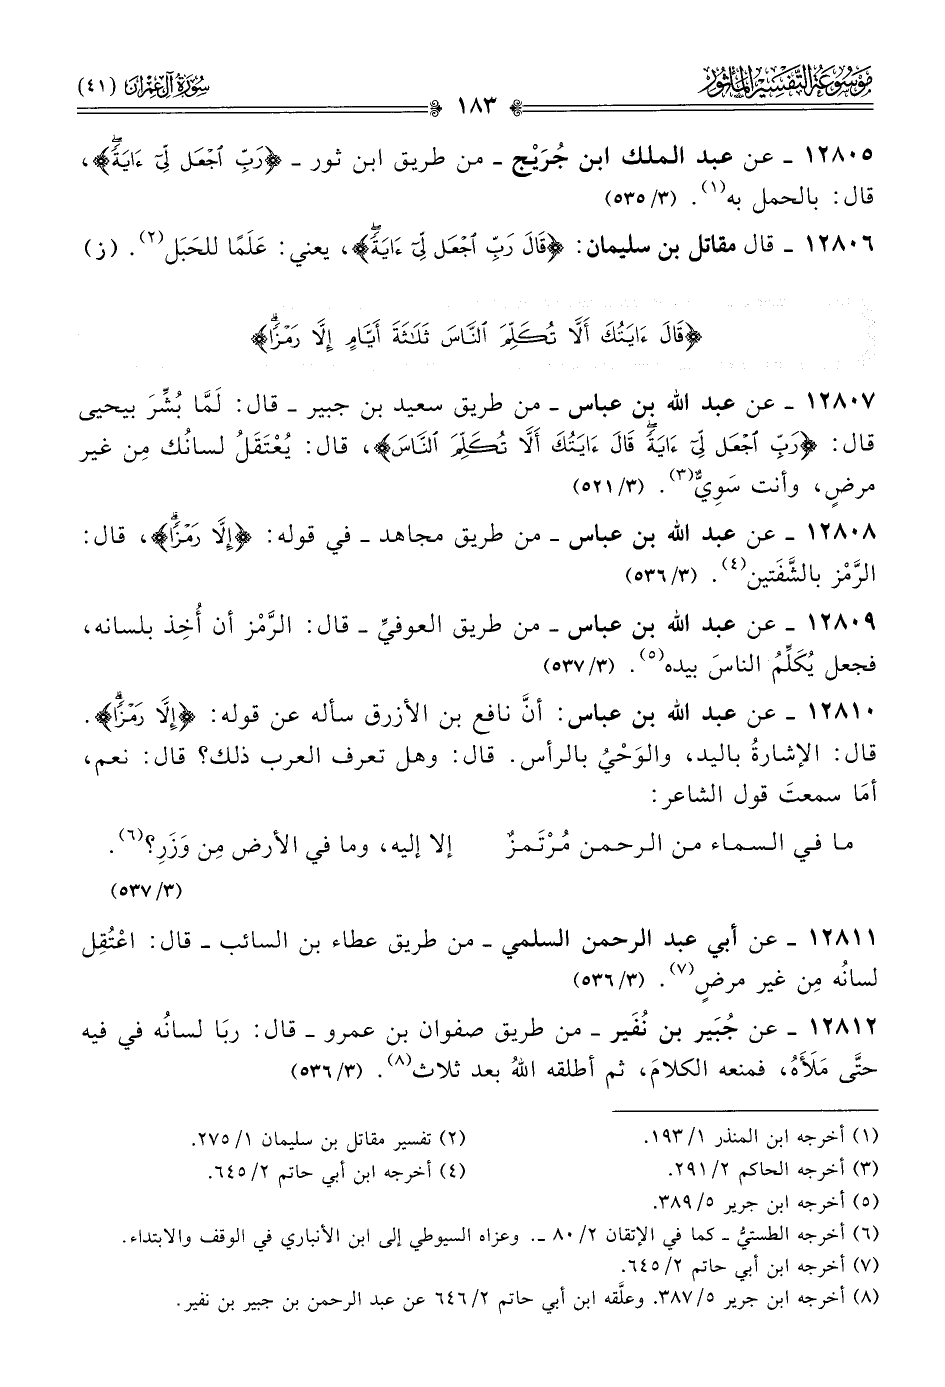 موسوعة التفسير المأثور
سورة آل عمران (٤١)
١٨٣
١٢٨٠٥ ـ عن عبد الملك ابن جُرَيْج ـ من طريق ابن ثور ـ ﴿رَبِّ ٱجْعَل لِّىٓ ءَايَةًۖ﴾،
قال: بالحمل به(١). (٣/ ٥٣٥)
١٢٨٠٦ ـ قال مقاتل بن سليمان: ﴿قَالَ رَبِّ ٱجْعَل لِّىٓ ءَايَةًۖ﴾، يعني: عَلَمًا للحَبَل(٢). (ز)
﴿قَالَ ءَايَتُكَ أَلَّا تُكَلِّمَ ٱلنَّاسَ ثَلَٰثَةَ أَيَّامٍ إِلَّا رَمْزًاۗ﴾
١٢٨٠٧ ـ عن عبد الله بن عباس ـ من طريق سعيد بن جبير ـ قال: لَمَّا بُشِّرَ بيحيى
قال: ﴿رَبِّ ٱجْعَل لِّىٓ ءَايَةًۖ قَالَ ءَايَتُكَ أَلَّا تُكَلِّمَ ٱلنَّاسَ﴾، قال: يُعْتَقَلُ لسانُك مِن غير
مرضٍ، وأنت سَوِيٌّ(٣). (٣/ ٥٢١)
١٢٨٠٨ ـ عن عبد الله بن عباس ـ من طريق مجاهد ـ في قوله: ﴿إِلَّا رَمْزًاۗ﴾، قال:
الرَّمْز بالشَّفَتين(٤). (٣/ ٥٣٦)
١٢٨٠٩ ـ عن عبد الله بن عباس ـ من طريق العوفيِّ ـ قال: الرَّمْز أن أُخِذ بلسانه،
فجعل يُكَلِّمُ الناسَ بيده(٥). (٣/ ٥٣٧)
١٢٨١٠ ـ عن عبد الله بن عباس: أنَّ نافع بن الأزرق سأله عن قوله: ﴿إِلَّا رَمْزًاۗ﴾.
قال: الإشارةُ باليد، والوَحْيُ بالرأس. قال: وهل تعرف العرب ذلك؟ قال: نعم،
أمَا سمعتَ قول الشاعر:
ما في السماء من الرحمن مُرْتَمزٌ إلا إليه، وما في الأرض مِن وَزَرِ؟(٦).
(٣/ ٥٣٧)
١٢٨١١ ـ عن أبي عبد الرحمن السلمي ـ من طريق عطاء بن السائب ـ قال: اعْتُقِل
لسانُه مِن غير مرضٍ(٧). (٣/ ٥٣٦)
١٢٨١٢ ـ عن جُبَير بن نُفَير ـ من طريق صفوان بن عمرو ـ قال: ربَا لسانُه في فيه
حتَّى مَلَأَهُ، فمنعه الكلامَ، ثم أطلقه اللهُ بعد ثلاث(٨). (٣/ ٥٣٦)
(١) أخرجه ابن المنذر ١/ ١٩٣. (٢) تفسير مقاتل بن سليمان ١/ ٢٧٥.
(٣) أخرجه الحاكم ٢/ ٢٩١. (٤) أخرجه ابن أبي حاتم ٢/ ٦٤٥.
(٥) أخرجه ابن جرير ٥/ ٣٨٩.
(٦) أخرجه الطستيُّ ـ كما في الإتقان ٢/ ٨٠ ـ. وعزاه السيوطي إلى ابن الأنباري في الوقف والابتداء.
(٧) أخرجه ابن أبي حاتم ٢/ ٦٤٥.
(٨) أخرجه ابن جرير ٥/ ٣٨٧. وعلَّقه ابن أبي حاتم ٢/ ٦٤٦ عن عبد الرحمن بن جبير بن نفير.